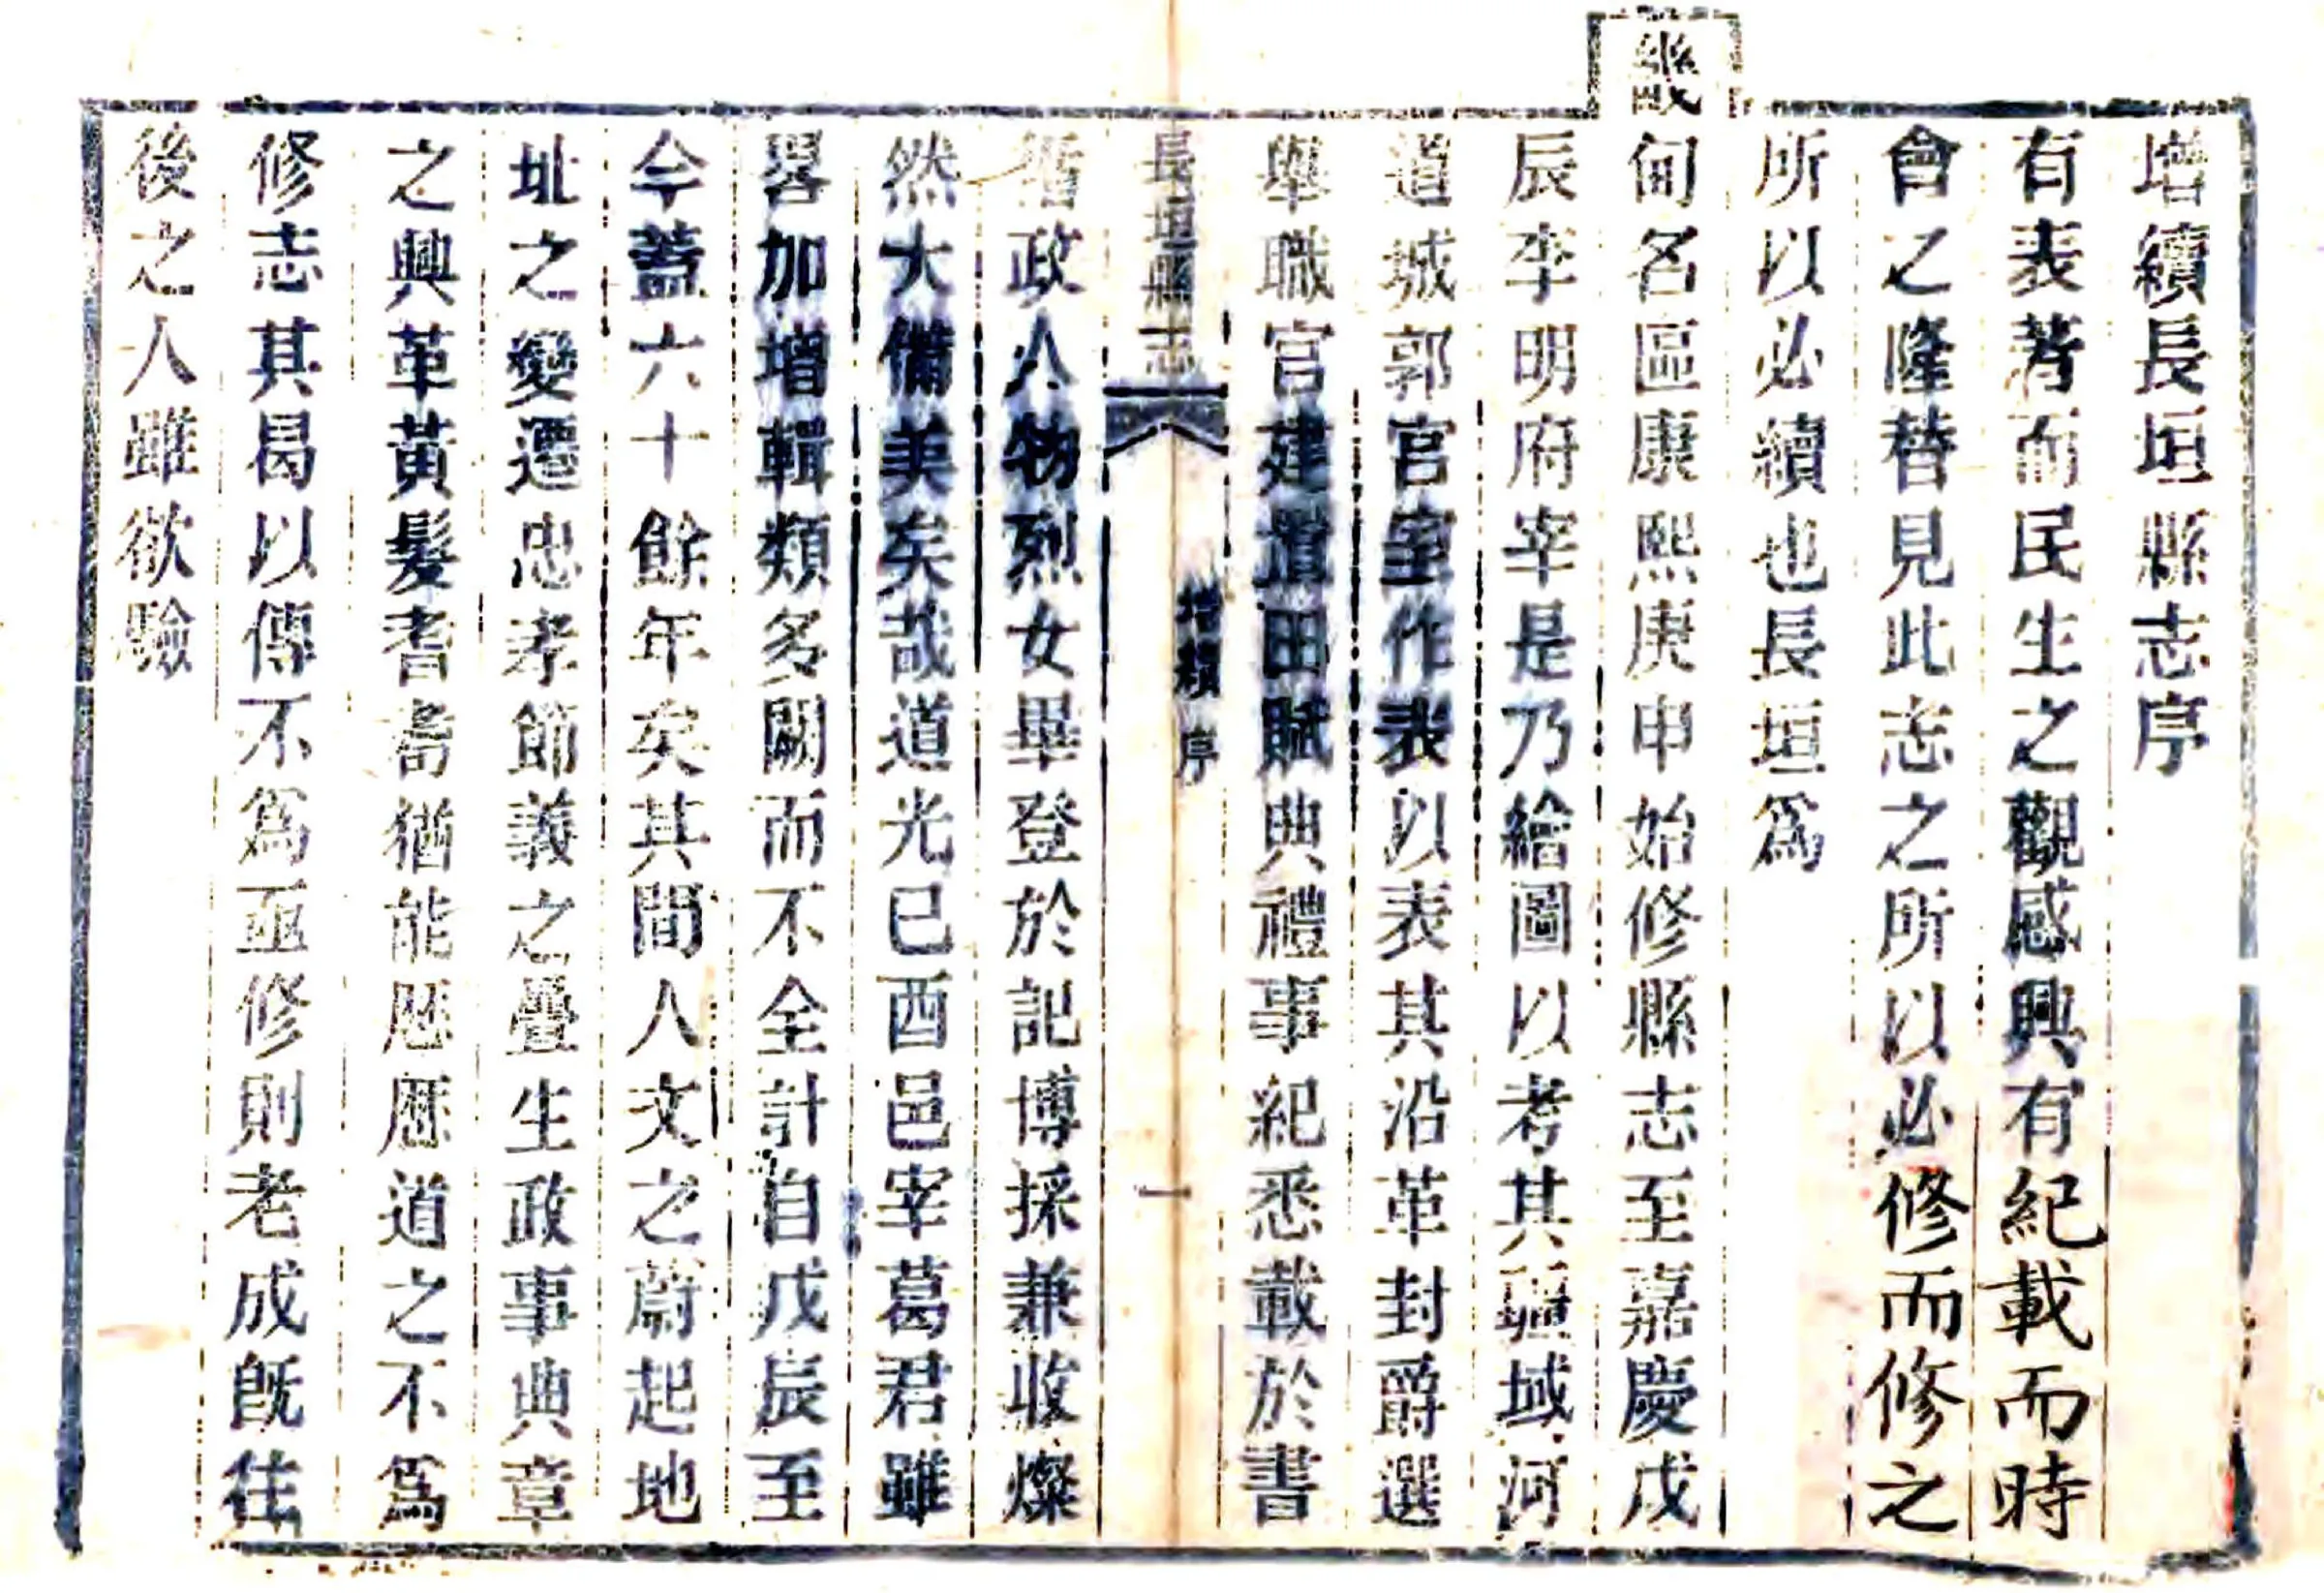 增續長垣縣志序
有表著而民生之觀感興有紀載而時
會之隆替見此志之所以必修而修之
所以必續也長垣爲
畿甸名區康熙庚申始修縣志至嘉慶戊
辰李明府宰是乃繪圖以考其疆域河
道城郭官室作表以表其沿革封爵選
舉職官建置田賦典禮事紀悉載於書
長垣縣志
增續 序
一
循政人物烈女畢登於記博採兼收燦
然大備美矣哉道光已酉邑宰葛君雖
畧加增輯類多闕而不全計自戊辰至
今蓋六十餘年矣其間人文之蔚起地
址之變遷忠孝節義之疊生政事典章
之興革黃髮耆耇猶能歷歷道之不爲
修志其曷以傳不爲亟修則老成旣往
後之人雖欲驗